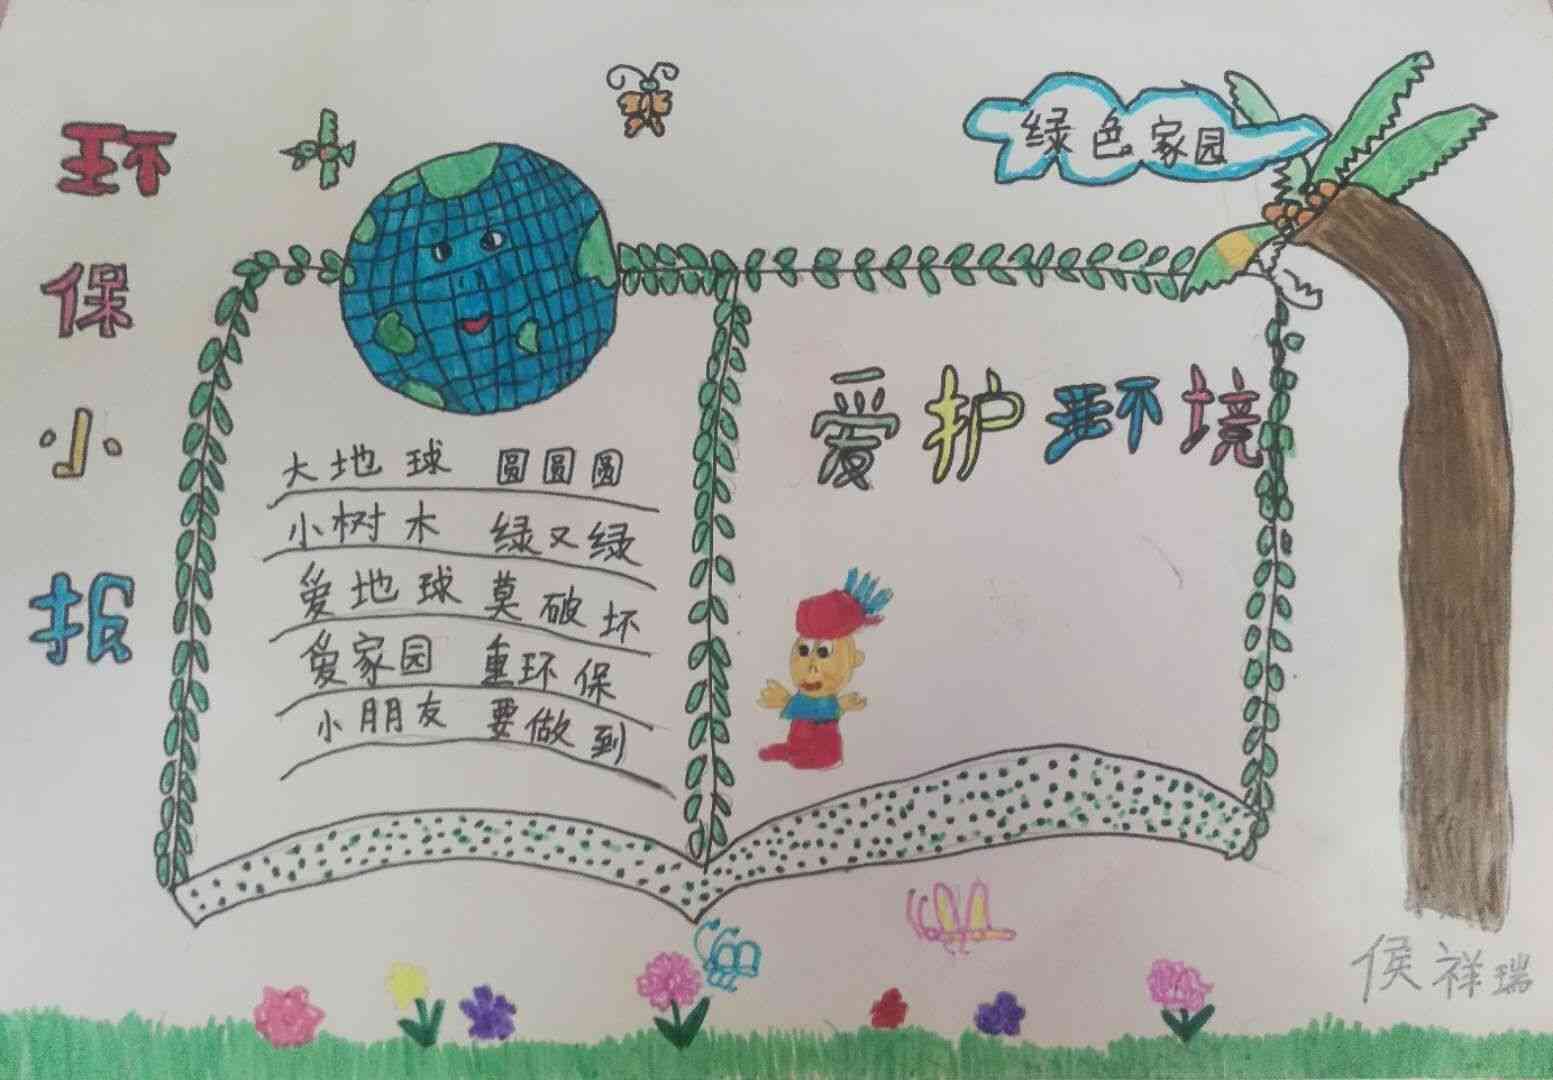 环保小报
绿色家园
大地球 圆圆圆
小树木 绿又绿
爱地球 莫破坏
爱家园 重环保
小朋友 要做到
爱护环境
侯祥瑞